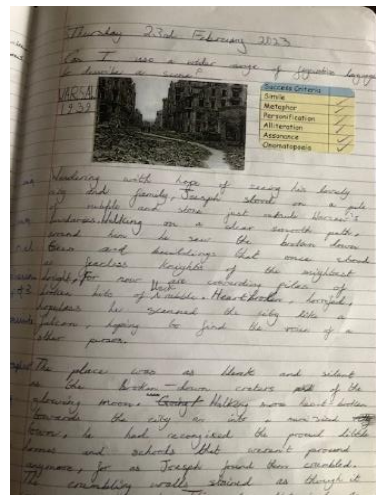 Thursday 23rd February 2023
Can I use a wider range of figurative language
to describe a scene?
WARSAW
1939
Success Criteria
Simile
Metaphor
Personification
Alliteration
Assonance
Onomatopoeia
Wandering with hope of seeing his lovely
and family, Joseph stood on a pile
of rubble and stone just outside Warsaw's
boundaries. Walking on a clear smooth path,
around him he saw the broken down
and buildings that once stood
fearless knights of the mightest
height, for now are piles of
broken bits of rubble. Heartbroken, horrified,
hopeless he scanned the city like a
falcon, hoping to find the voice of a
other person.
The place was as bleak and silent
as the broken-down craters of the
glowing moon. Walking more
towards the city in into a
town, he had recognized the proud little
homes and schools that weren't proud
anymore, for as Joseph found them crumbled.
The crumbling walls stained as though it